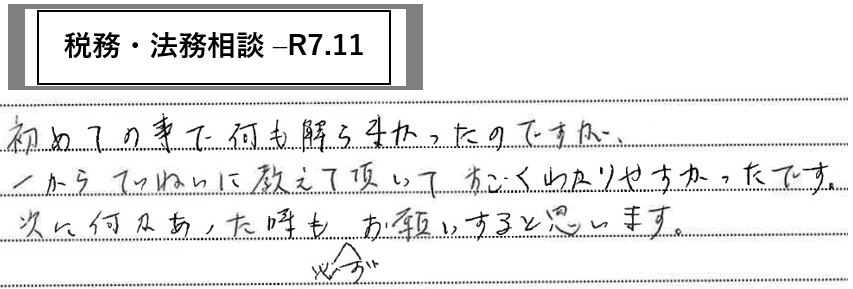 税務・法務相談 –R7.11
初めての事で何も解らなかったのですが、
一からていねいに教えて頂いてすごくわかりやすかったです。
次に何かあった時も必ずお願いすると思います。